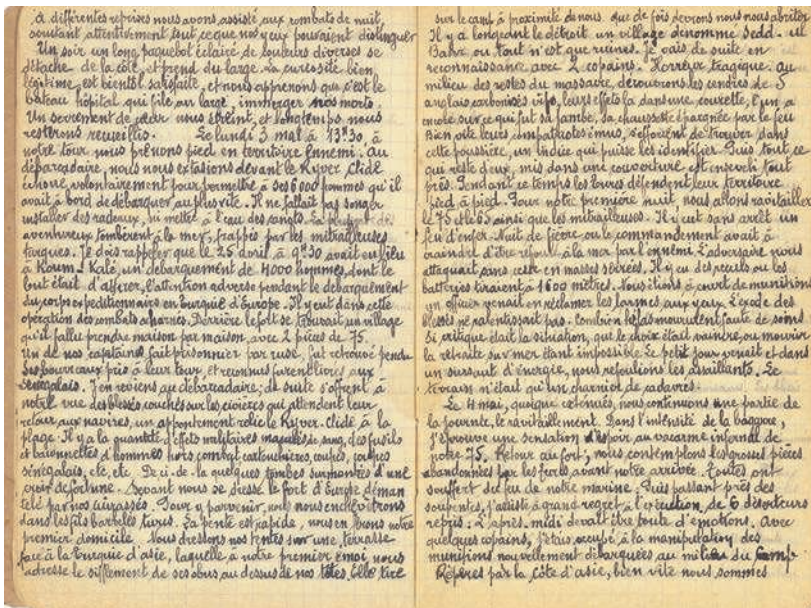 à différentes reprises nous avons assisté aux combats de nuit,
scrutant attentivement tout ce que nos yeux pouvaient distinguer
Un soir un long paquebot éclairé de couleurs diverses se
détache de la côte, et prend du large. La curiosité bien
légitime est bientôt satisfaite, et nous apprenons que c'est le
bateau hôpital qui file au large immerger nos morts.
Un serrement de cœur nous étreint, et longtemps nous
resterons recueillis. Le lundi 3 mai à 13h30, à
notre tour nous prenons pied en territoire ennemi. Au
débarcadaire, nous nous extasions devant le Kyver. Clidé
échoué volontairement pour permettre à ses 6000 hommes qu'il
avait à bord de débarquer au plus vite. Il ne fallait pas songer
installer des radeaux, ni mettre à l'eau des
aventureux tombèrent à la mer, frappés par les mitrailleuses
turques. Je dois rappeler que le 25 avril à 9h30 avait eu lieu
à Koum-Kalé, un débarquement de 4000 hommes, dont le
but était d'attirer l'attention adverse pendant le débarquement
du corps expéditionnaire en Turquie d'Europe. Il y eut dans cette
opération des combats acharnés. Derrière le fort se trouvait un village
qu'il fallut prendre maison par maison, avec 2 pièces de 75.
Un de nos capitaines fait prisonnier par ruse, fut retrouvé pendu
Ses bourreaux pris à leur tour, et reconnus furent livrés aux
Sénégalais. J'en reviens au débarcadaire; de suite s'offrent à
notre vue des blessés couchés sur les civières qui attendent leur
retour aux navires, un appontement relie le Kyver-Clidé à la
plage. Il y a là quantité d'effets militaires maculés de sang, des fusils
et baïonnettes d'hommes hors combat, cartouchières, coupes,
sénégalais, etc, etc. De ci-de-là quelques tombes surmontées d'une
croix de fortune. Devant nous se dresse le fort d'Europe déman
telé par nos cuirassés. Pour y parvenir, nous nous enchevêtrons
dans les fils barbelés turcs. La pente est rapide, nous en ferons notre
premier domicile. Nous dressons nos tentes sur une terrasse
face à la Turquie d'asie, laquelle à notre premier émoi, nous
adresse le sifflement de ses obus au dessus de nos têtes. Elle tire
sur le camp à proximité de nous. que de fois devrons nous nous abriter
Il y a longeant le détroit un village dénommé Sedd-ul
Bahr ou tout n'est que ruines. Je vais de suite en
reconnaissance avec 2 copains. Horreur tragique. Au
milieu des restes du massacre, découvrons les cendres de 5
anglais carbonisés vifs, leurs effets là dans une courette, l'un a
encore sur ce qui fut sa jambe, sa chaussette épargnée par le feu
Bien vite leurs compatriotes émus, s'efforcent de trouver dans
cette poussière, un indice qui puisse les identifier. Puis tout ce
qui reste d'eux, mis dans une couverture est enseveli tout
près. Pendant ce temps les turcs défendent leur territoire
pied à pied. Pour notre première nuit, nous allons ravitailler
le 75 et le 65 ainsi que les mitrailleuses. Il y eut sans arrêt un
feu d'enfer. Nuit de fièvre ou le commandement avait à
craindre d'être refoulé à la mer par l'ennemi. L'adversaire nous
attaquait sans cesse en masses serrées. Il y eu des reculs ou les
batteries tiraient à 1600 mètres. Nous étions à court de munitions
un officier venait en réclamer les larmes aux yeux. L'exode des
blessés ne ralentissait pas. Combien hélas moururent faute de soins
Si critique était la situation, que le choix était vaincre, ou mourir
la retraite sur mer étant impossible. Le petit jour venait et dans
un sursaut d'énergie, nous refoulions les assaillants. Le
terrain n'était qu'un charnier de cadavres.
Le 4 mai, quoique exténués, nous continuons une partie de
la journée, le ravitaillement. Dans l'intensité de la bagarre,
j'éprouve une sensation d'espoir au vacarme infernal de
notre 75. Retour au fort, nous contemplons les grosses pièces
abandonnées par les turcs avant notre arrivée. Toutes ont
souffert du feu de notre marine. Puis passant près des
, j'assiste à grand regret à l'exécution de 6 déserteurs
repris. L'après-midi devait être toute d'émotions. Avec
quelques copains, j'étais occupé à la manipulation des
munitions nouvellement débarquées au milieu du Camp
Repérés par la Côte d'asie, bien vite nous sommes